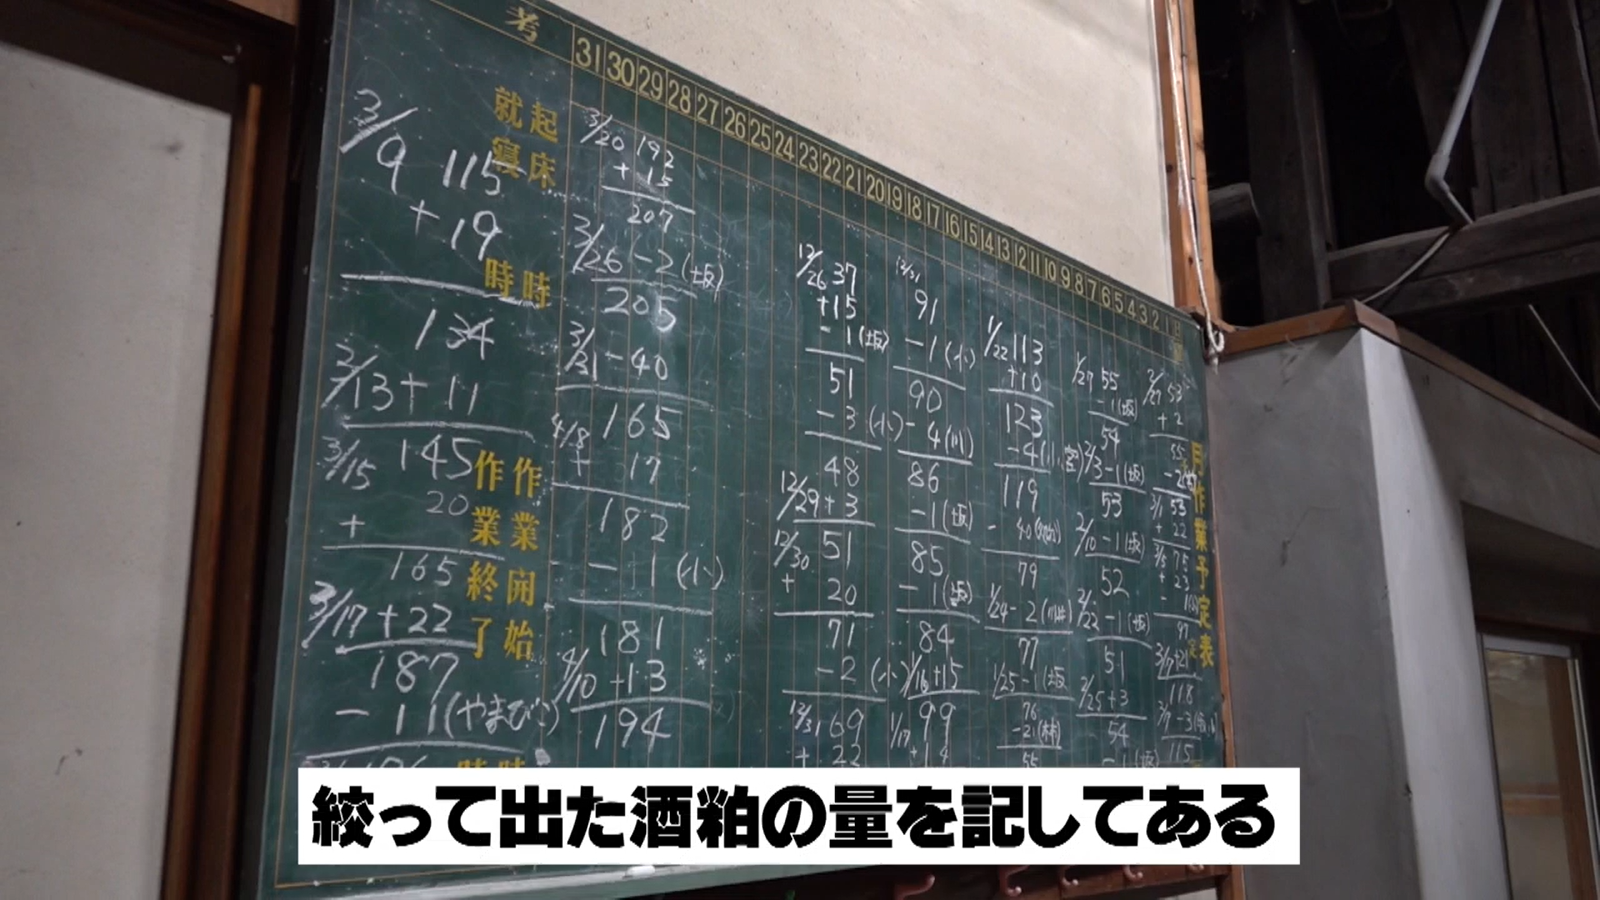 考
31 30 29 28 27 26 25 24 23 22 21 20 19 18 17 16 15 14 13 12 11 10 9 8 7 6 5 4 3 2 1
起床
就寝
時時
作業開始
作業終了
月作業予定表
3/9 115
+19
134
3/13 +11
145
3/15 20
+
165
3/17 +22
187
-11(やまびこ)
3/20 192
+15
207
3/26 -2(坂)
205
3/31 -40
165
4/8
+ 17
182
-1(小)
181
4/10 +13
194
12/26 37
+15
-1(坂)
51
-3(小)
48
12/29 +3
51
12/30
+ 20
71
-2(小)
12/31 69
+22
12/31
91
-1(小)
90
-4(川)
86
-1(坂)
85
-1(坂)
84
1/16 +15
99
1/17 +14
1/22 113
+10
123
119
79
1/24 -2
77
1/25 -1(坂)
76
-21(林)
55
1/27 55
-1(坂)
54
2/3 -1(坂)
53
2/10 -1(坂)
52
2/22 -1(坂)
51
2/25 +3
54
-1(坂)
2/27 53
+2
55
-2
3/1 53
+22
3/5 75
+23
97
118
115
絞って出た酒粕の量を記してある